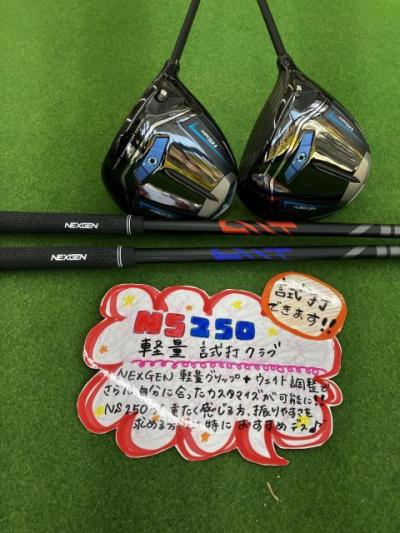 NEXGEN
NEXGEN
試打
できます!!
NS250
軽量 試打クラブ
NEXGEN 軽量グリップ + ウェイト調整で
さらに自分に合ったカスタマイズが可能に!!
NS250が重たく感じる方、振りやすさを
求める方に特におすすめデス♪